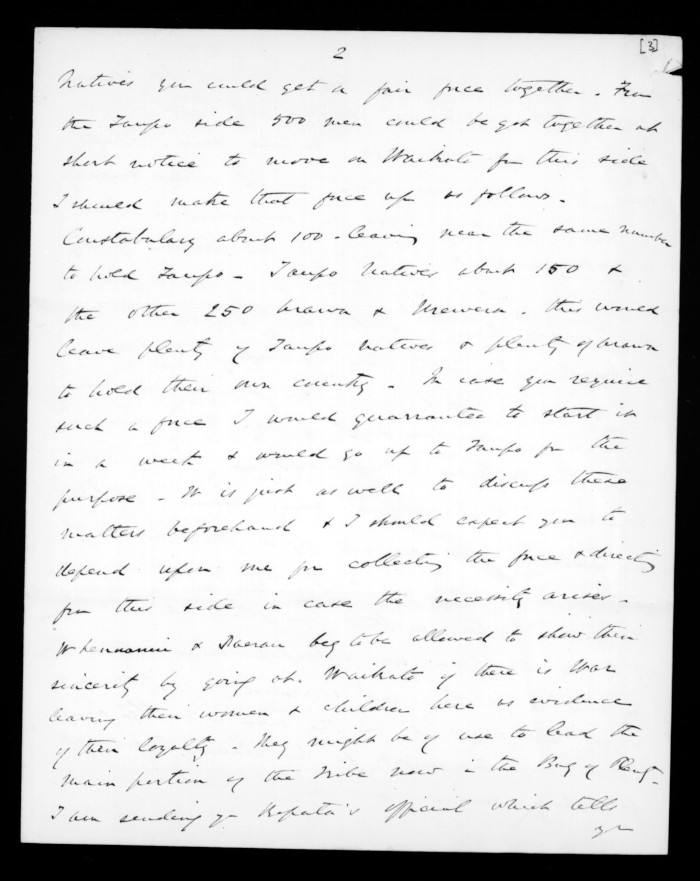 2
[3]
Natives you could get a fair force together. From
the Taupo side 500 men could be got together at
short notice to move on Waikato from this side
I should make that force up as follows.
Constabulary about 100 - leaving near the same number
to hold Taupo - Taupo Natives about 150 &
the other 250 Arawa & Urewera. this would
leave plenty of Taupo natives & plenty of Arawa
to hold their own country - In case you require
such a force I would guarrantee to start it
in a week & would go up to Taupo for the
purpose - It is just as well to discuss these
matters beforehand & I should expect you to
depend upon me for collecting the force & directing
from this side in case the necessity arises -
& beg to be allowed to show their
sincerity by going at Waikato if there is War
leaving their women & children here as evidence
of their loyalty - They might be of use to lead the
main portion of the Tribe now in the Bay of Plenty -
I am sending yr Ropata's official which tells
yr